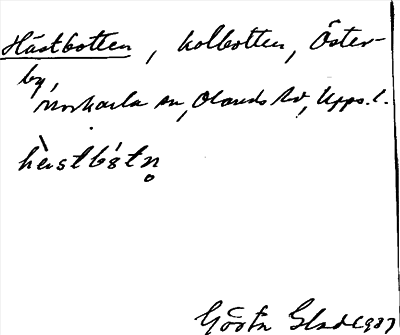 Hästbotten, kolbotten, Öster-
by,
Morkarla sn, Olands hd, Upps. l.
hὰstbó́tn̥
Gösta Glad 1937